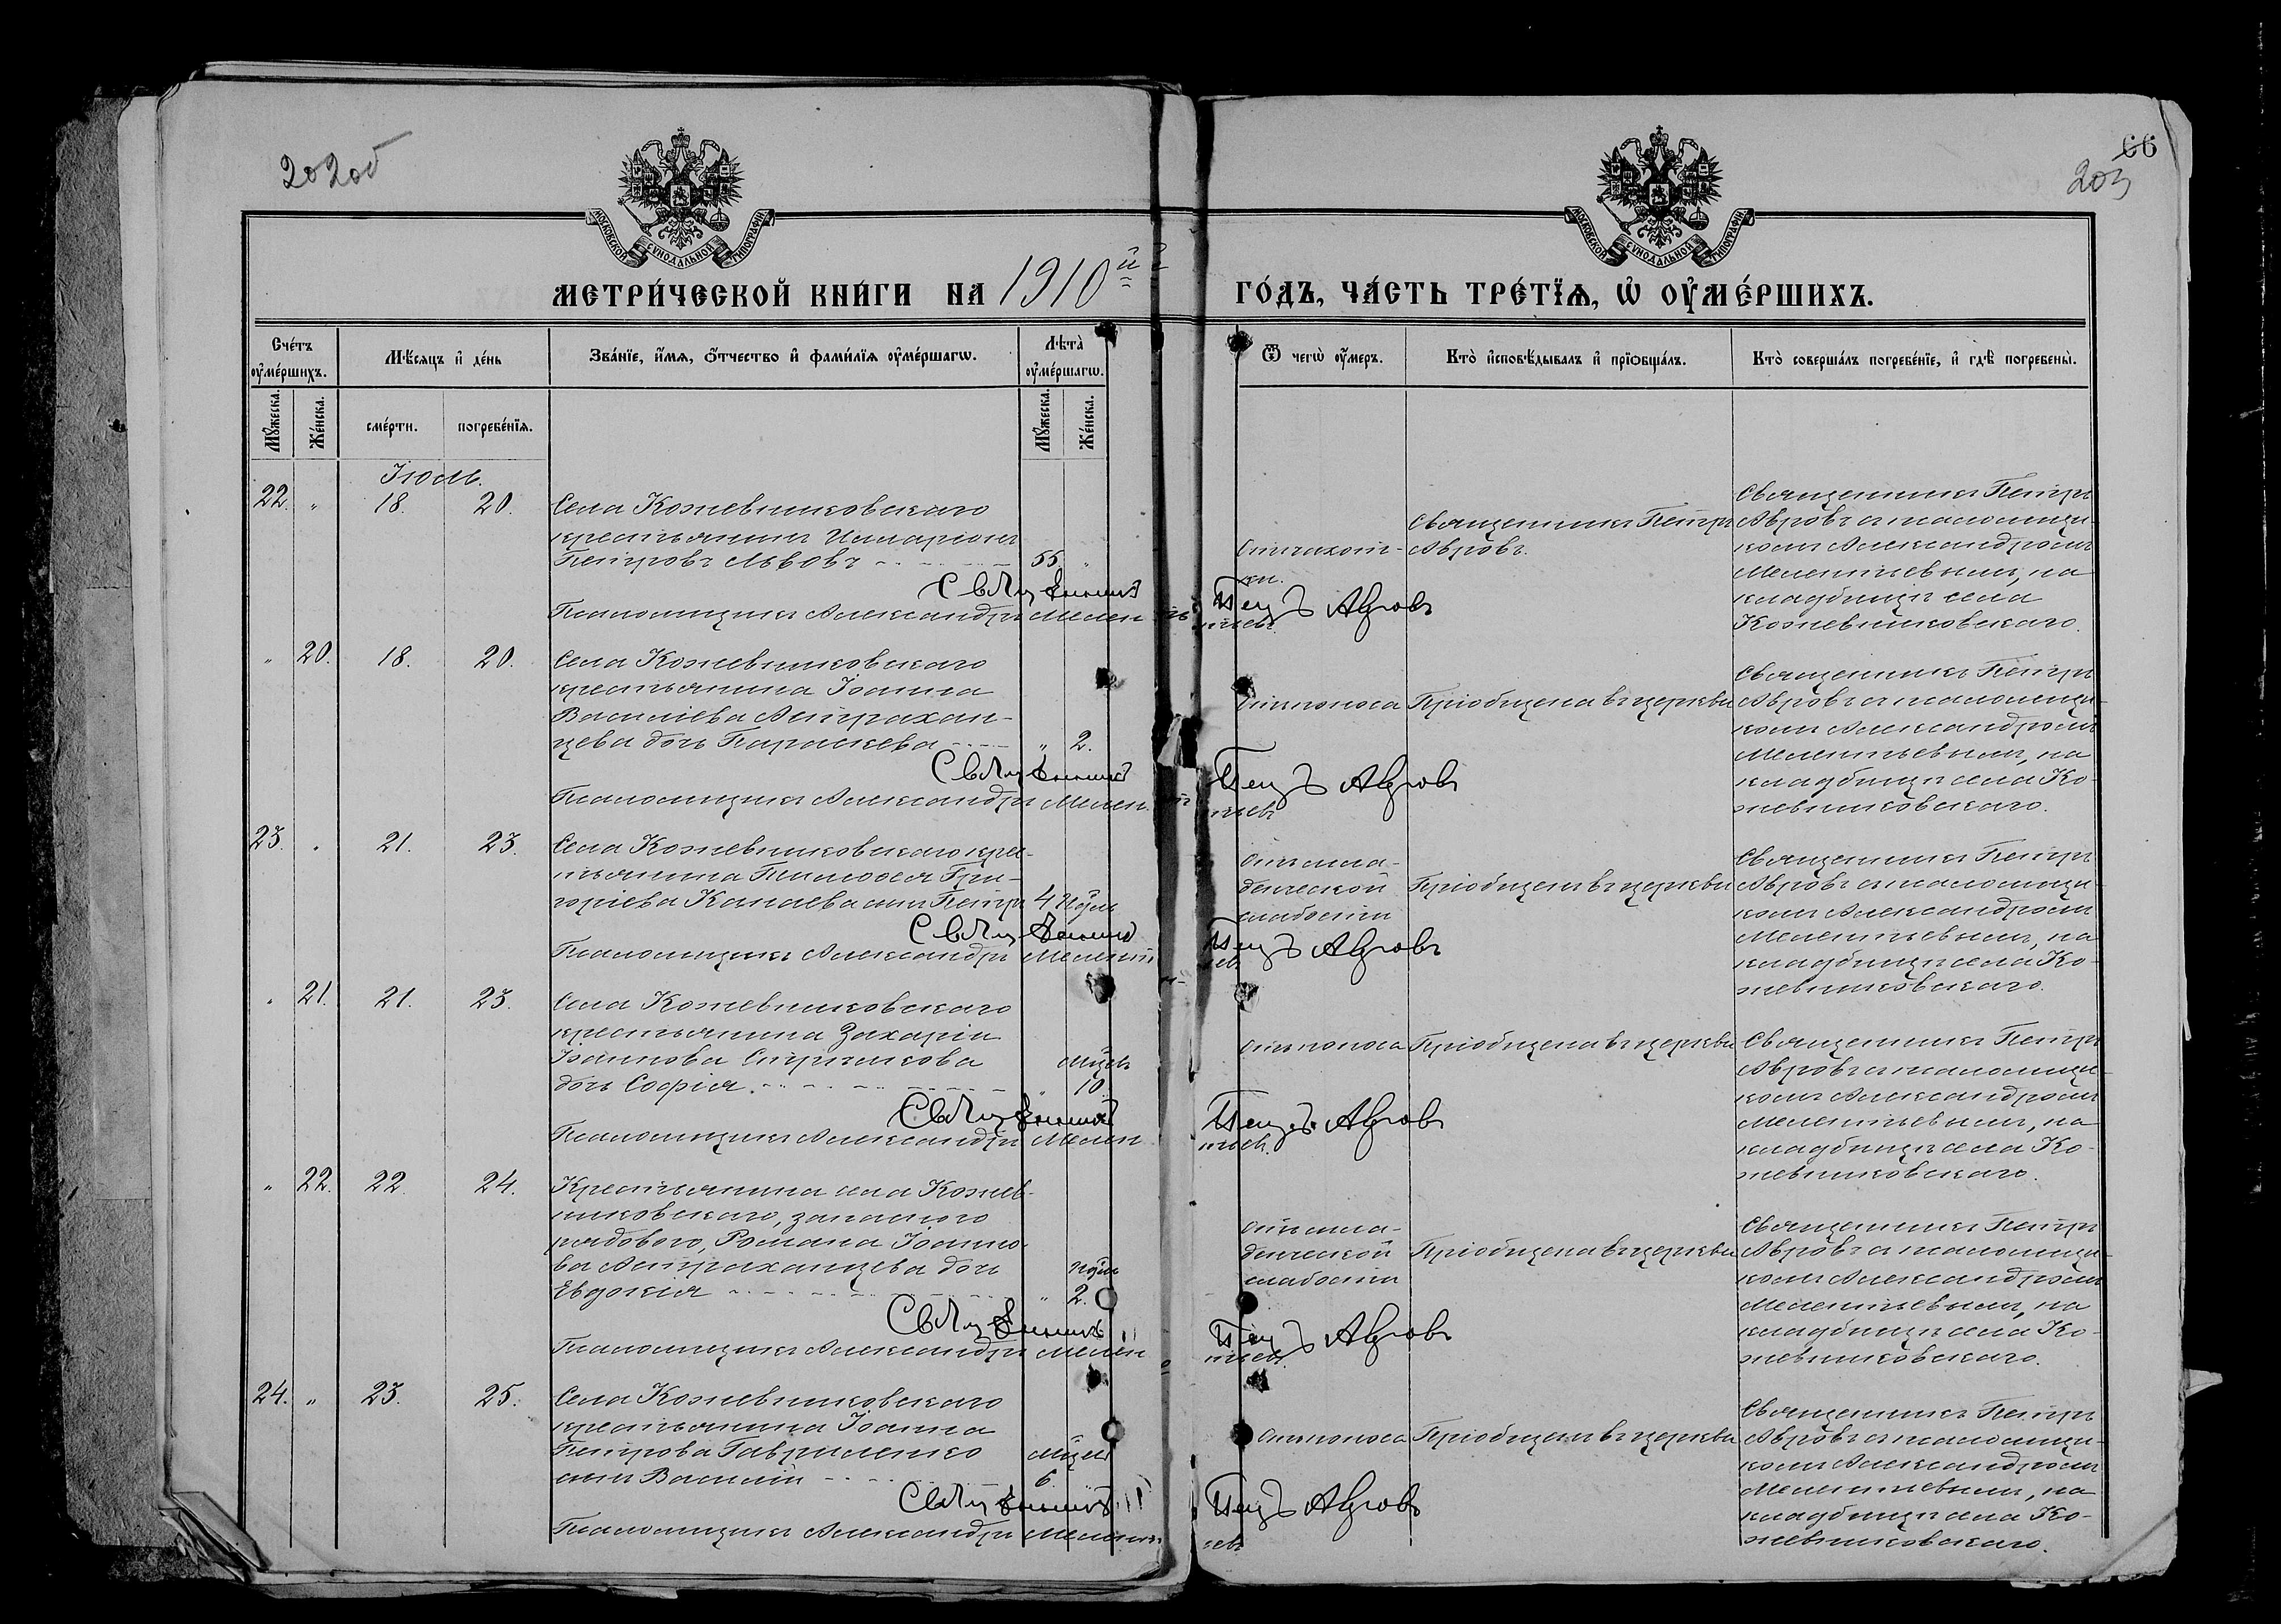 202об
66
203
МОСКОВСКОЙ СѴНОДАЛЬНОЙ ТИПОГРАФІИ
МОСКОВСКОЙ СѴНОДАЛЬНОЙ ТИПОГРАФІИ
МЕТРИ́ЧЕСКОЙ КНИ́ГИ НА 1910й
ГО́ДЪ, ЧА́СТЬ ТРЕ́ТЇѦ, Ѡ҆ ОУ҆МЕ́РШИХЪ.
Сче́тъ оу҆ме́ршихъ.
Мѣ́сяцъ и҆ де́нь
Зва́нїе, и҆́мѧ, ѻ҆́тчество и҆ фами́лїѧ оу҆ме́ршагѡ.
Лѣ́та̀ оу҆ме́ршагѡ.
Ѿ чегѡ̀ оу҆́меръ.
Кто̀ и҆сповѣ́дывалъ и҆ прїѡбща́лъ.
Кто̀ соверша́лъ погребе́нїе, и҆ гдѣ̀ погребены̀.
Мꙋ́жеска.
Же́нска.
сме́рти.
погребе́нїѧ.
Мꙋ́жеска.
Же́нска.
Іюль.
22. " 18. 20.
Села Кожевниковскаго
крестьянинъ Илларіонъ
Петровъ Львовъ 55. "
Отъ чахот-
ки.
Священникъ Петръ
Авровъ.
Священникъ Петръ
Авровъ съ псаломщи-
комъ Александромъ
Мелентьевымъ, на
кладбищѣ села
Кожевниковскаго.
Священникъ Петръ Авровъ
Псаломщикъ Александръ Мелентьевъ.
" 20. 18. 20.
Села Кожевниковскаго
крестьянина Іоанна
Васильева Астрахан-
цева дочь Параскева " 2.
Отъ поноса
Пріобщена въ церкви
Священникъ Петръ
Авровъ съ псаломщи-
комъ Александромъ
Мелентьевымъ, на
кладбищѣ села Ко-
жевниковскаго.
Священникъ Петръ Авровъ
Псаломщикъ Александръ Мелентьевъ
23. " 21. 23.
Села Кожевниковскаго кре-
стьянина Гри-
горіева сынъ Петръ 4 нѣд.
Отъ мла-
денческой
слабости
Пріобщенъ въ церкви
Священникъ Петръ
Авровъ съ псаломщи-
комъ Александромъ
Мелентьевымъ, на
кладбищѣ села Ко-
жевниковскаго.
Священникъ Петръ Авровъ
Псаломщикъ Александръ Мелентьевъ
" 21. 21. 23.
Села Кожевниковскаго
крестьянина Захаріи
Іоаннова
дочь Софія. " мѣсц. 10.
Отъ поноса
Пріобщена въ церкви
Священникъ Петръ
Авровъ съ псаломщи-
комъ Александромъ
Мелентьевымъ, на
кладбищѣ села Ко-
жевниковскаго.
Священникъ Петръ Авровъ
Псаломщикъ Александръ Мелентьевъ.
" 22. 22. 24.
Крестьянина села Кожев-
никовскаго, запасного
рядового, Романа Іоанно-
ва Астраханцева дочь
Евдокія " нѣд. 2.
Отъ мла-
денческой
слабости
Пріобщена въ церкви
Священникъ Петръ
Авровъ съ псаломщи-
комъ Александромъ
Мелентьевымъ, на
кладбищѣ села Ко-
жевниковскаго.
Священникъ Петръ Авровъ
Псаломщикъ Александръ Мелентьевъ.
24. " 23. 25.
Села Кожевниковскаго
крестьянина Іоанна
Петрова Гавриленко
сынъ Василій мѣсц. 6.
Отъ поноса
Пріобщенъ въ церкви
Священникъ Петръ
Авровъ съ псаломщи-
комъ Александромъ
Мелентьевымъ, на
кладбищѣ села Ко-
жевниковскаго.
Священникъ Петръ Авровъ
Псаломщикъ Александръ Мелентьевъ